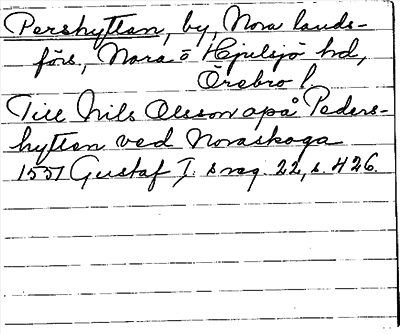 Pershyttan, by, Nora lands-
förs., Nora ö Hjulsjö hd,
Örebro l.
Till Nils Olsson opå Peders-
hyttan ved Noraskoga
1551 Gustaf I. s reg. 22, s. 426.